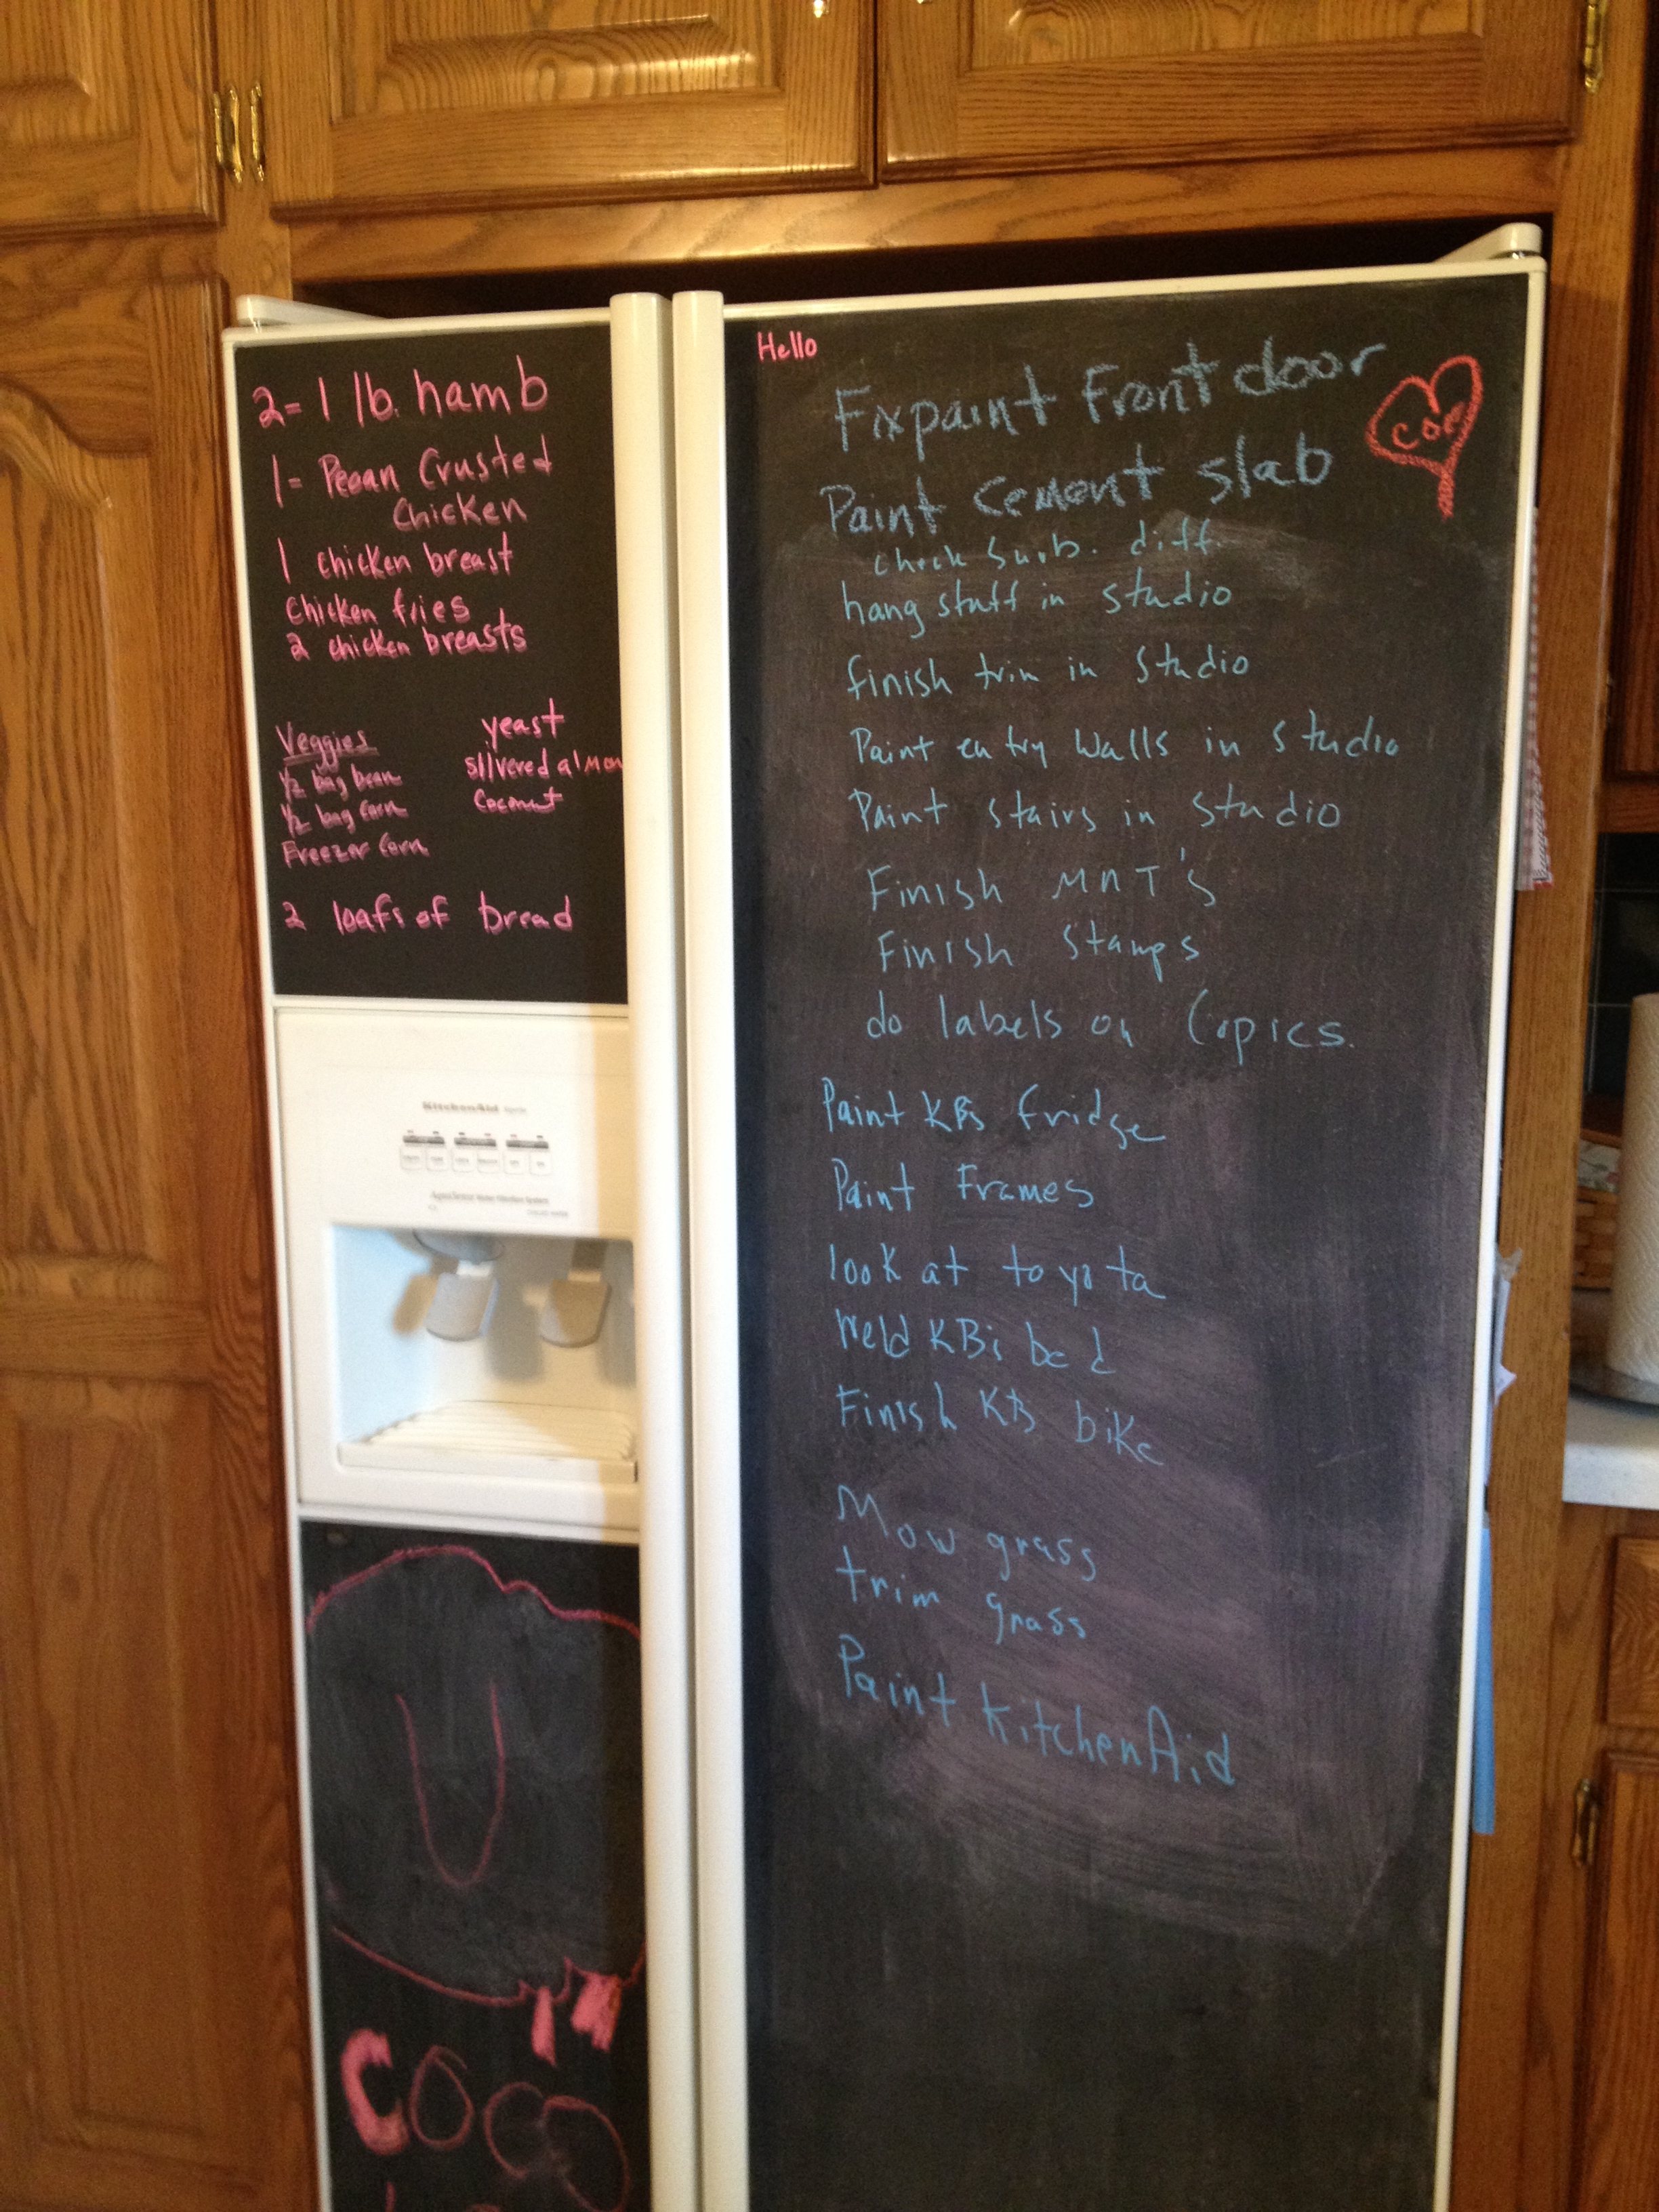 2= 1 lb. hamb
1- Pecan Crusted
Chicken
1 chicken breast
Chicken fries
2 chicken breasts
Veggies
1/2 bag bean
1/2 bag corn
Freezer Corn
yeast
slivered almon
Coconut
2 loafs of bread
KitchenAid
COCO
Hello
Fixpaint Front door
coe
Paint cement slab
check Surb. diff.
hang stuff in studio
finish trim in studio
Paint entry Walls in studio
Paint stairs in studio
Finish MNT's
Finish Stamps
do labels on Copics.
Paint KB's fridge
Paint Frames
look at toyota
Weld KB's bed
Finish KB bike
Mow grass
trim grass
Paint KitchenAid